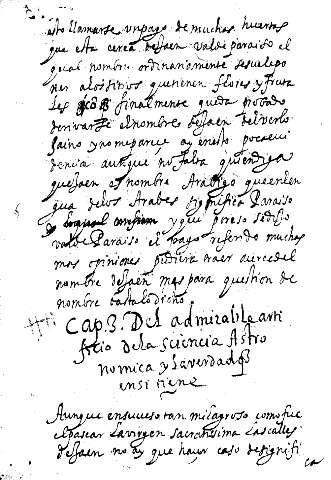 esto llamarse un pago de muchas huertas
que esta cerca de Jaen valdeparaiso el
qual nombre ordinariamente se suele po
ner a los sitios que tienen flores y fruta
les finalmente queda probado
derivarse el nombre de Jaen del verbo
y no me parece ay en esto poca evi
dencia aunque no falta quien diga
que Jaen es nombre Arabigo que en len
gua de los Arabes significa Paraiso
y que por eso se dijo
valde Paraiso el pago referido muchas
mas opiniones pudiera traer acerca del
nombre de Jaen mas para question de
nombre basta lo dicho
Cap. 3. Del admirable arti
ficio de la sciencia Astro
nomica y la verdad q
en si tiene
Aunque en suceso tan milagroso como fue
el pasear la virgen sacratisima las calles
de Jaen no ay que hacer caso de signifi
ca